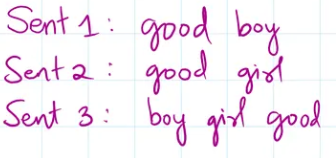 Sent 1: good boy
Sent 2: good girl
Sent 3: boy girl good